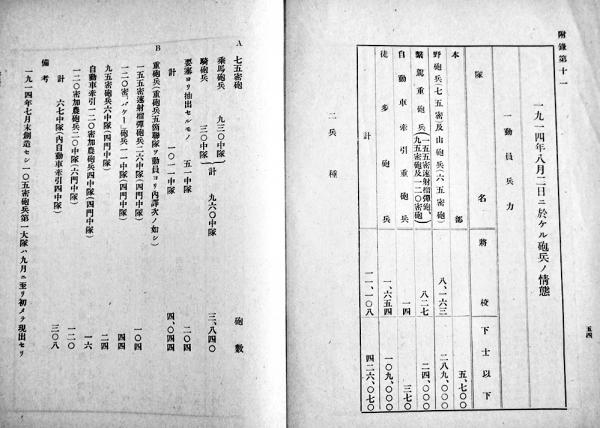 附錄第十一
一九一四年八月二日ニ於ケル砲兵ノ情態
一動員兵力
隊名 將校 下士以下
本部 五、七〇〇
野砲兵(七五密)及山砲兵(六五密) 八、一六三 二八九、〇〇〇
繫駕重砲兵(一五五密速射榴彈砲、九五密砲及一二〇密砲) 八二七 二四、〇〇〇
自動車牽引重砲兵 一四 三七〇
徒步砲兵 一、六五四 一〇九、〇〇〇
計 一一、一〇八 四二六、〇七〇
二兵種
五四
砲數
A 七五密砲
乘馬砲兵 九三〇中隊 計 九六〇中隊 三、八四〇
騎砲兵 三〇中隊
要塞ヨリ抽出セルモノ 五一中隊 二〇四
計 一〇一一中隊 四、〇四四
B 重砲兵(重砲兵五箇聯隊ヲ動員ヨリ內譯次ノ如シ)
一五五密速射榴彈砲兵二六中隊(四門中隊) 一〇四
一二〇密「バケー」砲兵一一中隊(四門中隊) 四四
九五密砲兵六中隊(四門中隊) 二四
自動車牽引一二〇密加農砲兵四中隊(四門中隊) 一六
一二〇密加農砲兵二〇中隊(六門中隊) 一二〇
計 六七中隊(內自動車牽引四中隊) 三〇八
備考
一九一四年七月末創造セシ一〇五密砲兵第一大隊ハ九月ニ至リ初メテ現出セリ